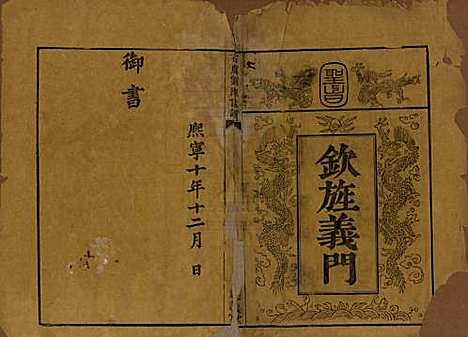 聖旨
欽旌義門
熙寧十年十二月 日
御書